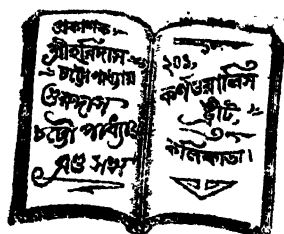 প্রকাশক:
শ্রীহরিদাস
চট্টোপাধ্যায়
গুরুদাস
চট্টোপাধ্যায়
এণ্ড সন্স
২০৩,
কর্ণওয়ালিস
ষ্ট্রীট,
কলিকাতা।